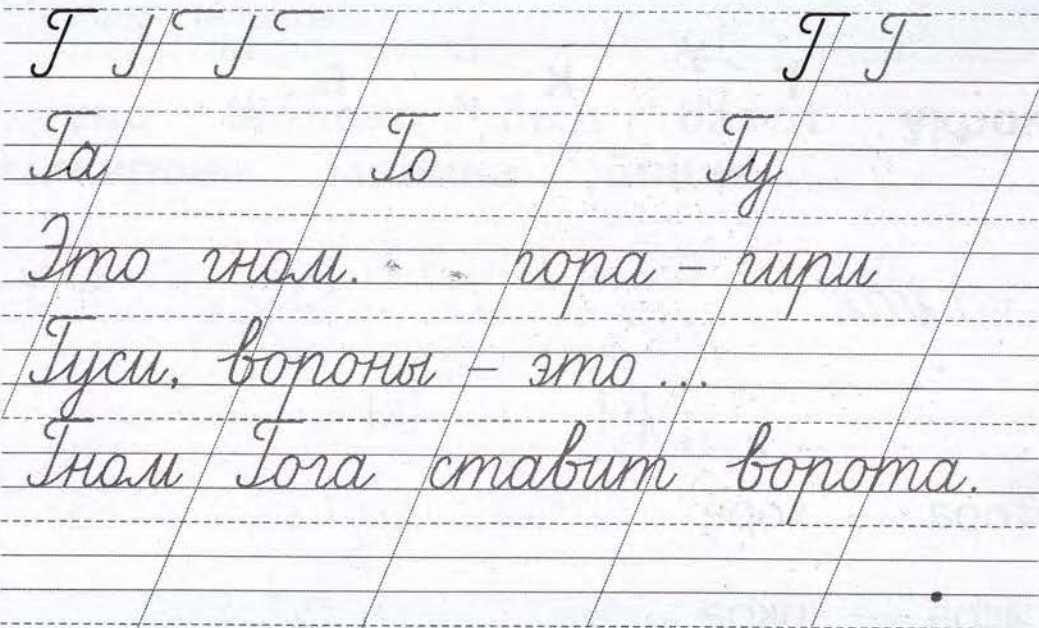 Г Г Г Г
Га Го Гу
Это гном. гора – гири
Гуси, вороны – это ...
Гном Гога ставит ворота.